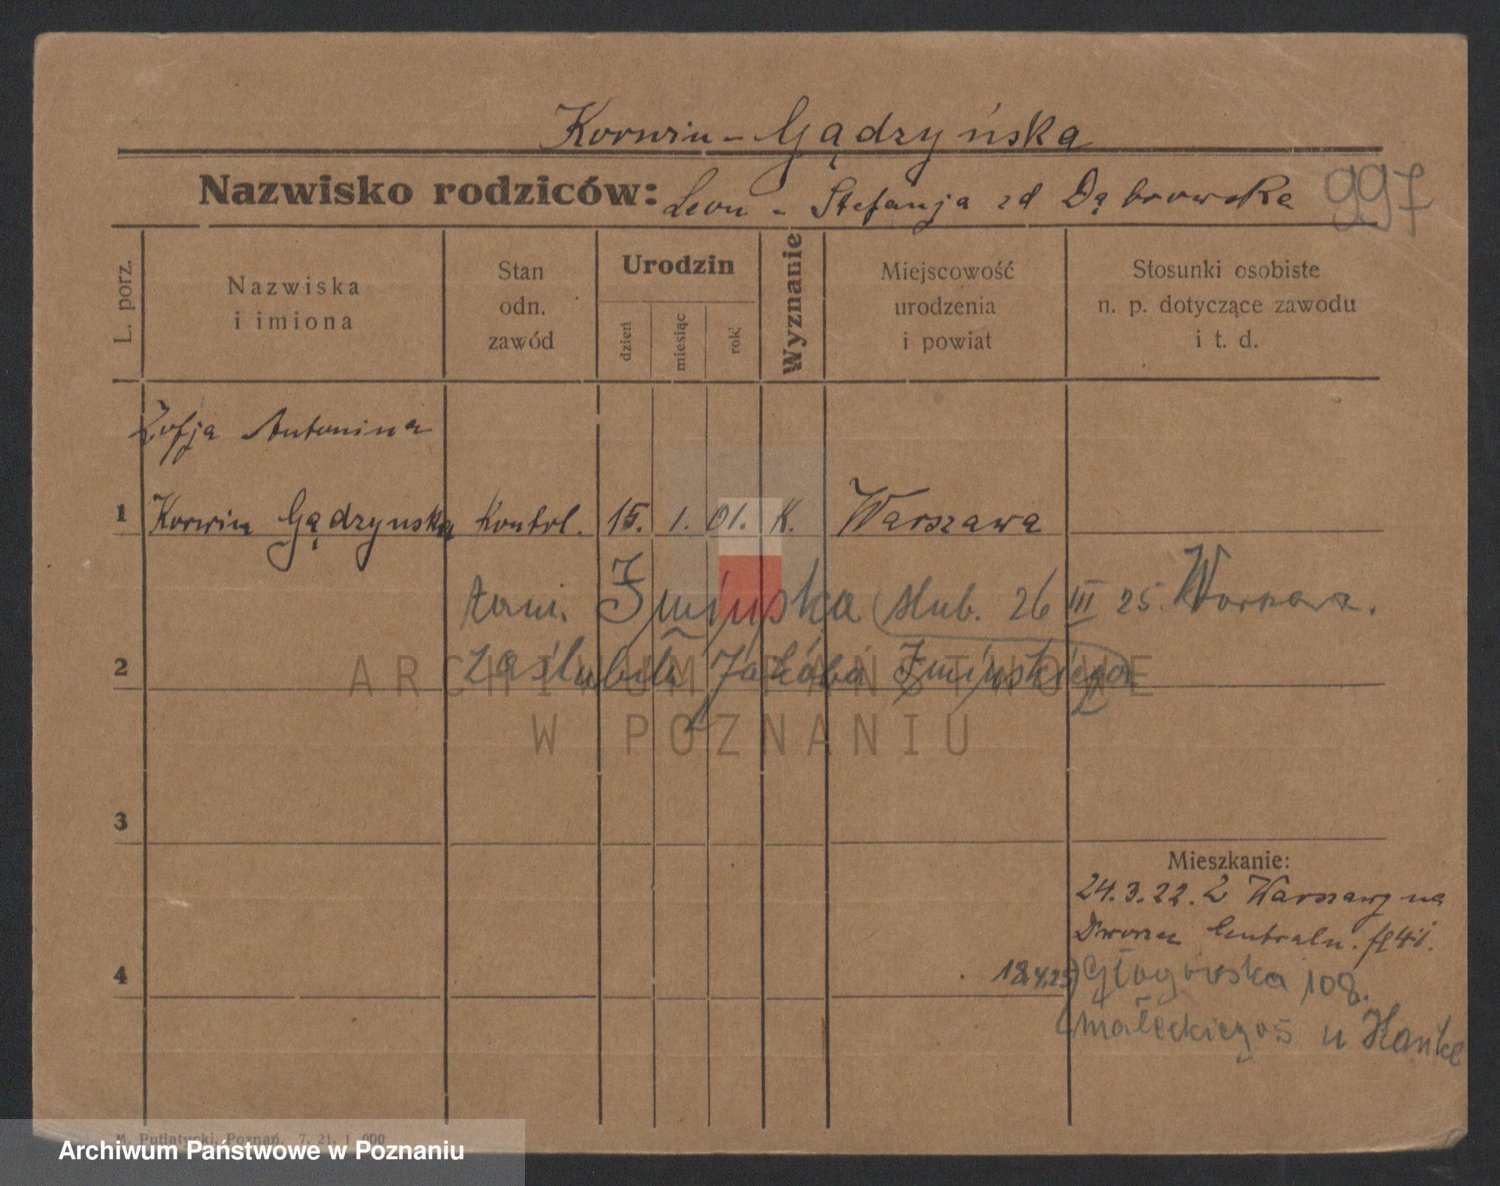 Korwin - Gądzyńska
Nazwisko rodziców: Leon - Stefanja zd Dąbrowska 997
L. porz.
Nazwiska
i imiona
Stan
odn.
zawód
Urodzin
dzień
miesiąc
rok
Wyznanie
Miejscowość
urodzenia
i powiat
Stosunki osobiste
n. p. dotyczące zawodu
i t. d.
Zofja Antonina
1 Korwin Gądzynska kontrol. 15. 1. 01. K. Warszawa
zam. Żmijska slub. 26 III 25. Warszawa.
2 zaślubiła Jakóba
ARCHIWUM PAŃSTWOWE
W POZNANIU
3
Mieszkanie:
24.3.22. Z Warszawy na
Dworzec Centraln.
4 18.4.25 Głogowska 108.
Małeckiego u Hanke
K. Putiatycki, Poznań. 7. 21. 1 000
Archiwum Państwowe w Poznaniu